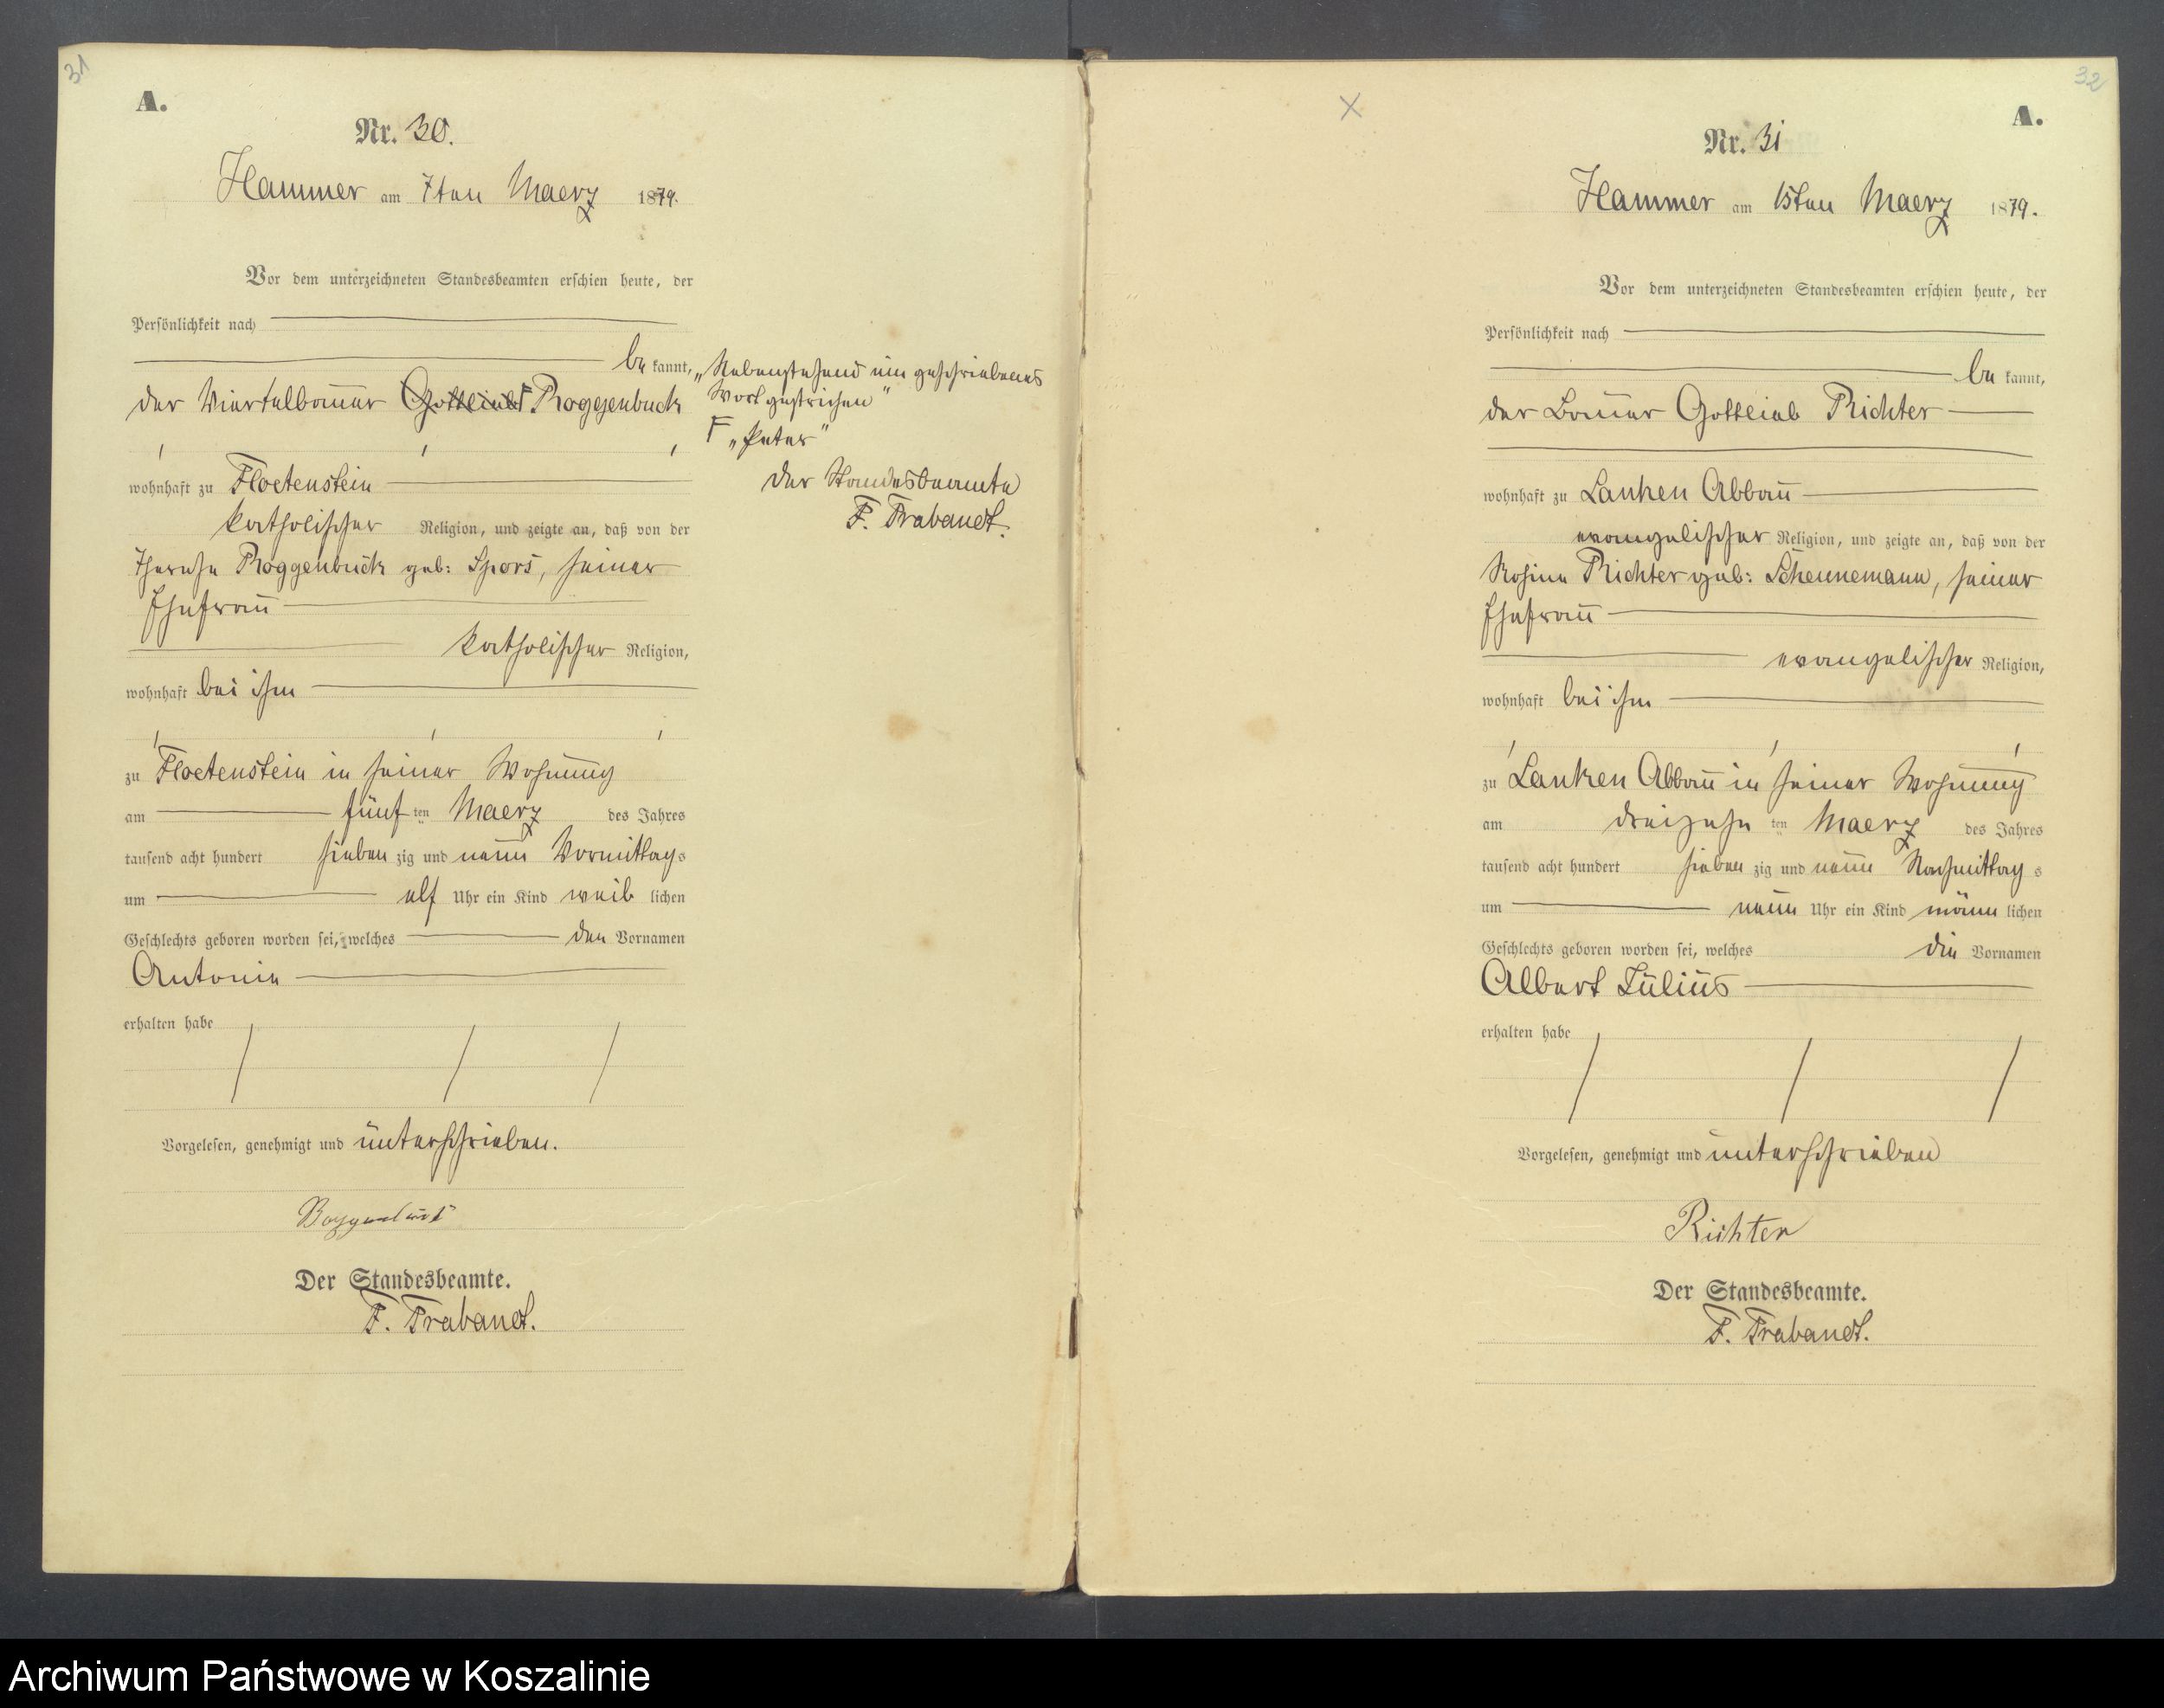 31
A.
Nr. 30.
Hammer am 7ten Maerz 1879.
Vor dem unterzeichneten Standesbeamten erschien heute, der
Persönlichkeit nach
be kannt,
der Viertelbauer Gottlieb Γ Roggenbuck
wohnhaft zu Floetenstein
katholischer Religion, und zeigte an, daß von der
Therese Roggenbuck geb: Spors, seiner
Ehefrau
katholischer Religion,
wohnhaft bei ihm
zu Floetenstein in seiner Wohnung
am fünf ten Maerz des Jahres
tausend acht hundert sieben zig und neun Vormittags
um elf Uhr ein Kind weib lichen
Geschlechts geboren worden sei, welches den Vornamen
Antonie
erhalten habe
Vorgelesen, genehmigt und unterschrieben.
Roggenbuck
Der Standesbeamte.
F. Trabandt.
„Nebenstehend ein geschriebenes
Wort gestrichen"
Γ „Peter"
Der Standesbeamte
F. Trabandt.
32
A.
Nr. 31
Hammer am 15ten Maerz 1879.
Vor dem unterzeichneten Standesbeamten erschien heute, der
Persönlichkeit nach
be kannt,
der Bauer Gottlieb Richter
wohnhaft zu Lanken Abbau
evangelischer Religion, und zeigte an, daß von der
Rosine Richter geb: Schennemann, seiner
Ehefrau
evangelischer Religion,
wohnhaft bei ihm
zu Lanken Abbau in seiner Wohnung
am dreizehn ten Maerz des Jahres
tausend acht hundert sieben zig und neun Nachmittags
um neun Uhr ein Kind männ lichen
Geschlechts geboren worden sei, welches die Vornamen
Albert Julius
erhalten habe
Vorgelesen, genehmigt und unterschrieben
Richter
Der Standesbeamte.
F. Trabandt.
Archiwum Państwowe w Koszalinie